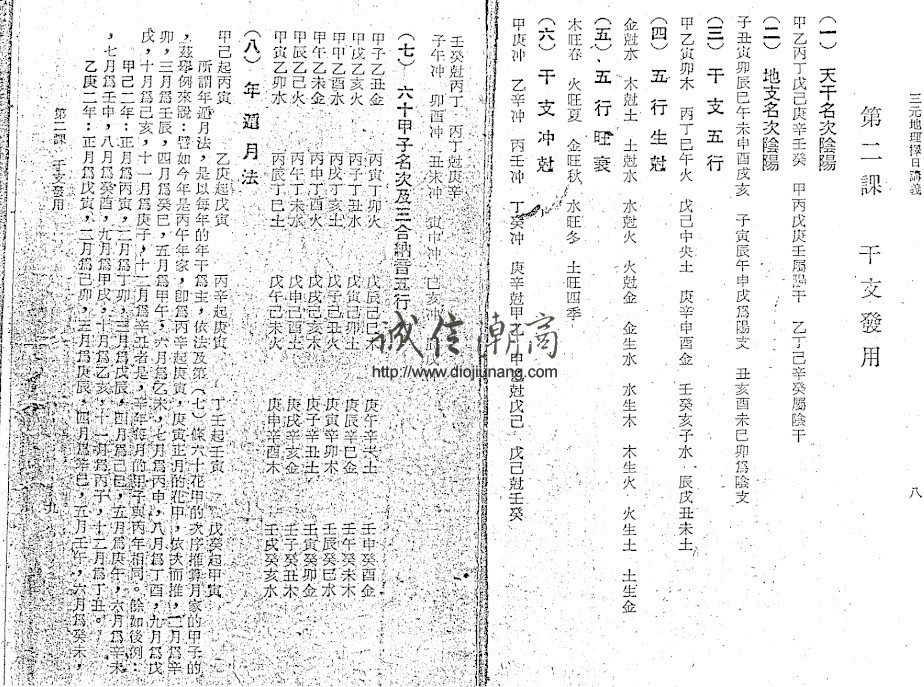 三元地理擇日講義 八
第二課 干支發用
(一) 天干名次陰陽
甲乙丙丁戊己庚辛壬癸 甲丙戊庚壬屬陽干 乙丁己辛癸屬陰干
(二) 地支名次陰陽
子丑寅卯辰巳午未申酉戌亥 子寅辰午申戌為陽支 丑亥酉未巳卯為陰支
(三) 干支五行
甲乙寅卯木 丙丁巳午火 戊己中央土 庚辛申酉金 壬癸亥子水 辰戌丑未土
(四) 五行生尅
金尅木 木尅土 土尅水 水尅火 火尅金 金生水 水生木 木生火 火生土 土生金
(五) 五行旺衰
木旺春 火旺夏 金旺秋 水旺冬 土旺四季
(六) 干支冲尅
甲庚冲 乙辛冲 丙壬冲 丁癸冲 庚辛尅甲乙 甲乙尅戊己 戊己尅壬癸
壬癸尅丙丁 丙丁尅庚辛
子午冲 卯酉冲 丑未冲 寅申冲 巳亥冲
(七) 六十甲子名次及三合納音五行
甲子乙丑金 丙寅丁卯火 戊辰己巳木 庚午辛未土 壬申癸酉金
甲戌乙亥火 丙子丁丑水 戊寅己卯土 庚辰辛巳金 壬午癸未木
甲申乙酉水 丙戌丁亥土 戊子己丑火 庚寅辛卯木 壬辰癸巳水
甲午乙未金 丙申丁酉火 戊戌己亥木 庚子辛丑土 壬寅癸卯金
甲辰乙巳火 丙午丁未水 戊申己酉土 庚戌辛亥金 壬子癸丑木
甲寅乙卯水 丙辰丁巳土 戊午己未火 庚申辛酉木 壬戌癸亥水
(八) 年遁月法
甲己起丙寅 乙庚起戊寅 丙辛起庚寅 丁壬起壬寅 戊癸起甲寅
所謂年遁月法，是以每年的年干為主，依法及第(七)條六十花甲的次序推算月家的甲子的
，茲舉例來說：譬如今年是丙午年家，即為丙辛起庚寅，庚寅正月的花甲，依次而推，二月為辛
卯，三月為壬辰，四月為癸巳，五月為甲午，六月為乙未，七月為丙申，八月為丁酉，九月為戊
戌，十月為己亥，十一月為庚子，十二月為辛丑者是，辛年每月的甲子與丙年相同。餘如後例：
甲己二年：正月為丙寅，二月為丁卯，三月為戊辰，四月為己巳，五月為庚午，六月為辛未
，七月為壬申，八月為癸酉，九月為甲戌，十月為乙亥，十一月為丙子，十二月為丁丑。
乙庚二年：正月為戊寅，二月為己卯，三月為庚辰，四月為辛巳，五月為壬午，六月為癸未，
第二課 干支發用 九
诚信潮商
http://www.diojiunang.com